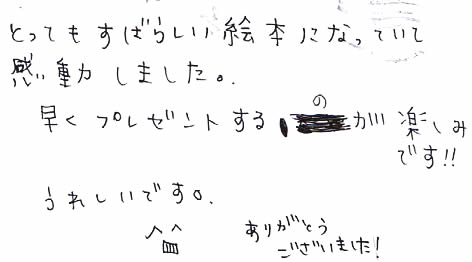 とってもすばらしい絵本になっていて
感動しました。
早くプレゼントするのが楽しみ
です!!
うれしいです。
ありがとう
ございました!